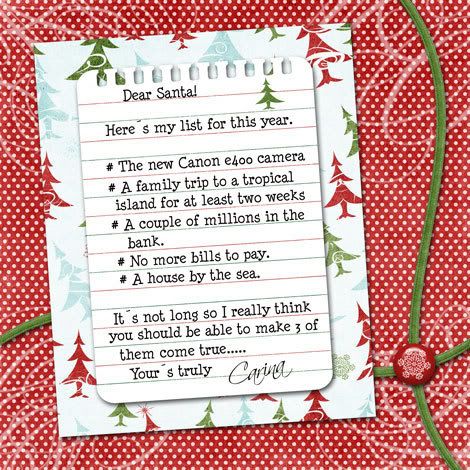 Dear Santa!
Here´s my list for this year.
# The new Canon e400 camera
# A family trip to a tropical
island for at least two weeks
# A couple of millions in the
bank.
# No more bills to pay.
# A house by the sea.
It´s not long so I really think
you should be able to make 3 of
them come true.....
Your´s truly Carina